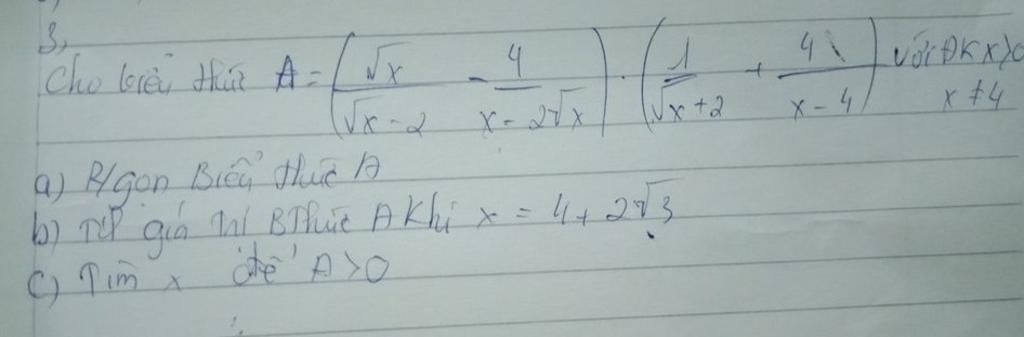 3,
Cho biểu thức A = (√x/(√x-2) - 4/(x-2√x)) . (1/(√x+2) + 4/(x-4)) với ĐK x>0 x≠4
a) R/gọn Biểu thức A
b) giá trị BThức A Khi x = 4+2√3
c) Tìm x để A>0